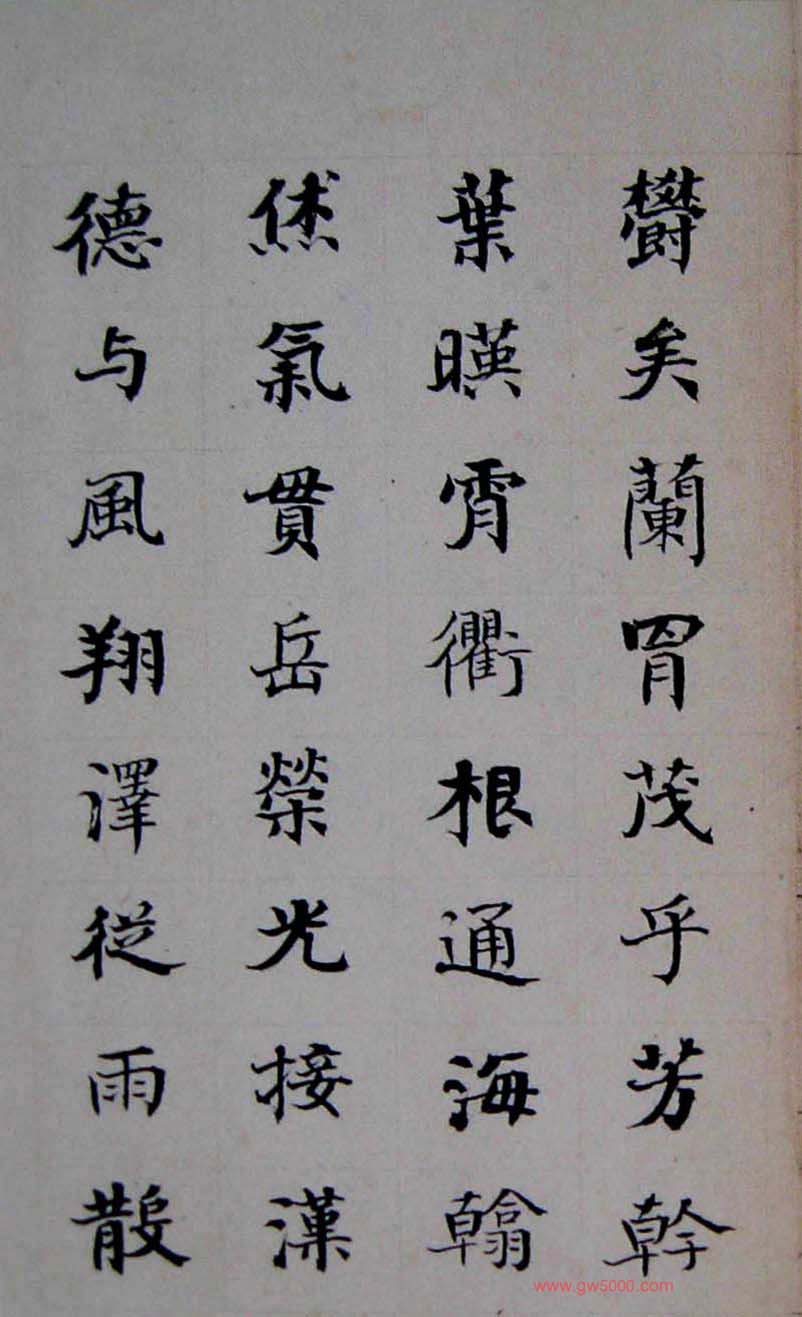 欝矣蘭胄茂乎芳幹
葉暎霄衢根通海翰
烋氣貫岳榮光接漢
德与風翔澤從雨散
www.gw5000.com